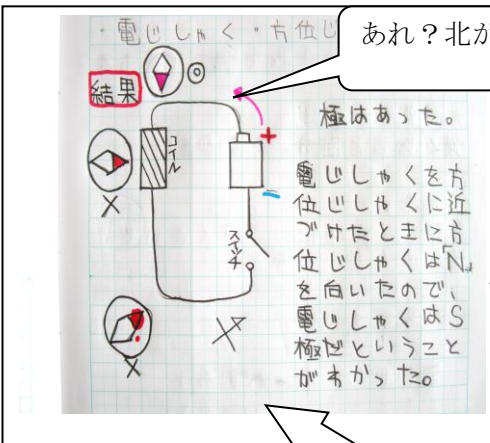 ・電じしゃく・方位じ
あれ？北が
結果
極はあった。
コイル
+
電じしゃくを方
位じしゃくに近
づけたときに方
位じしゃくは「N」
を向いたので、
電じしゃくはS
極だということ
がわかった。
スイッチ